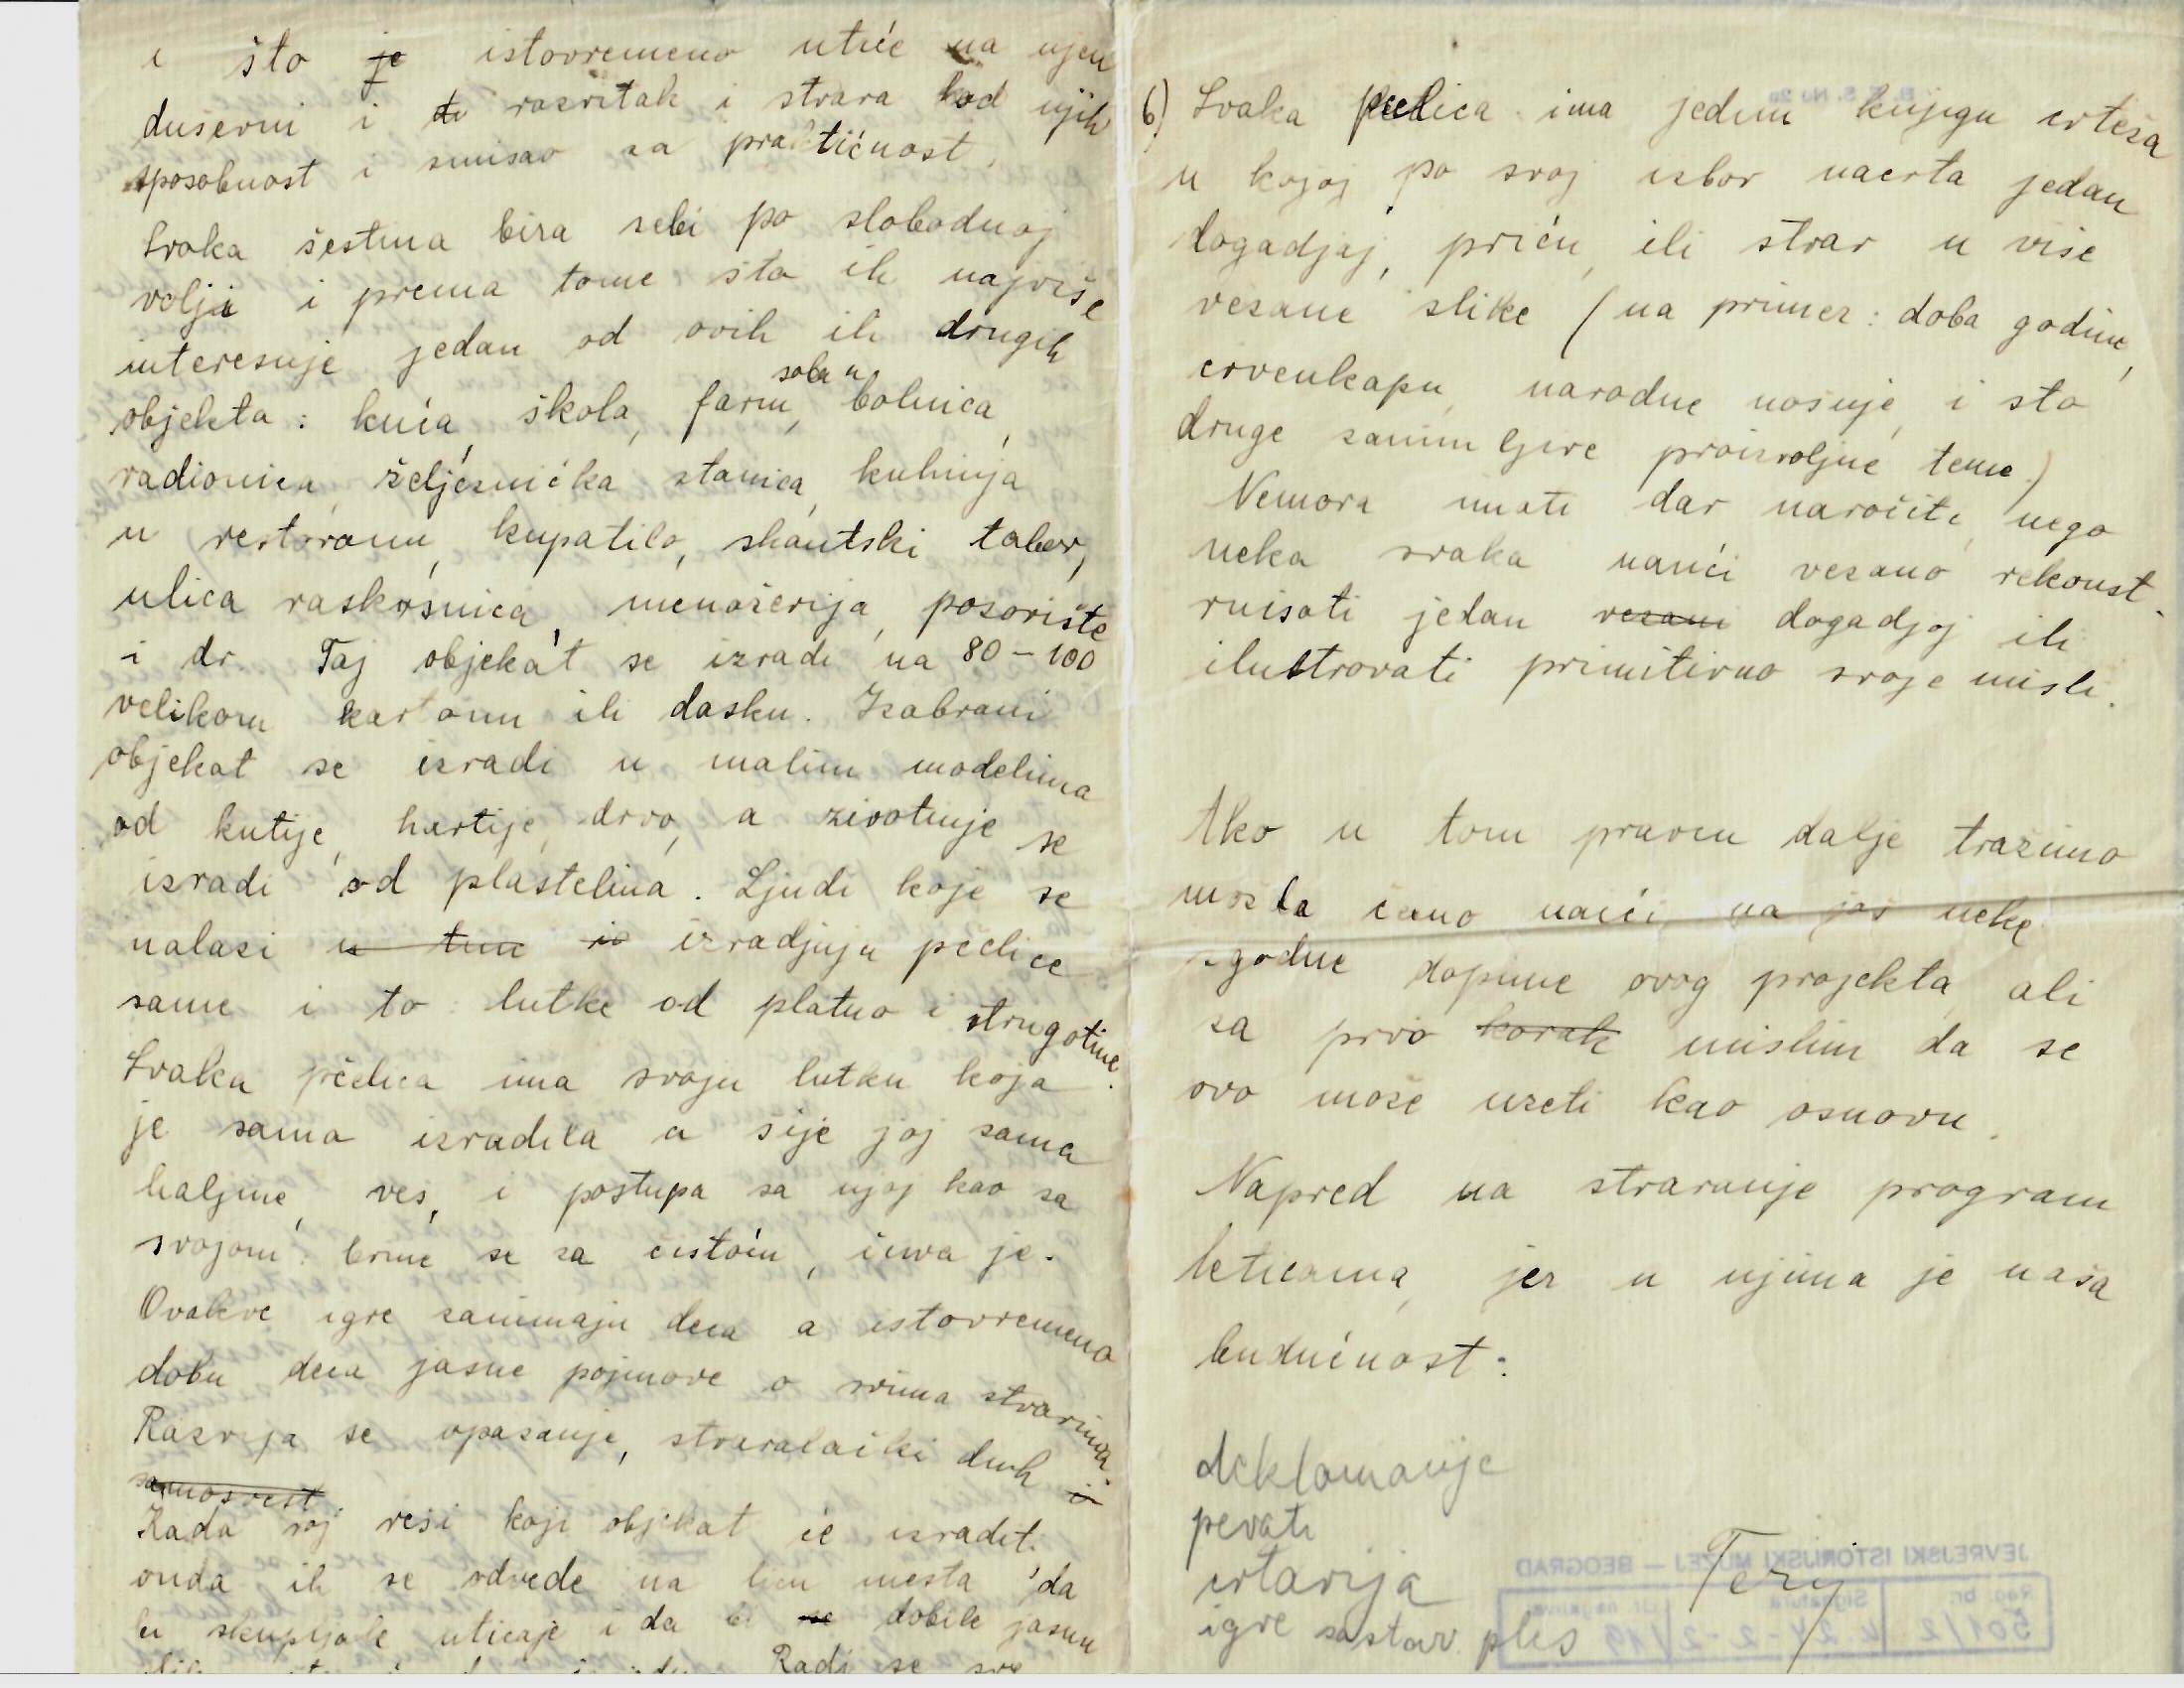 i što je istovremeno utiće na njen
duševni i to razvitak i stvara kod njih
sposobnost i smisao za praktićnost.
Svaka šestina bira sebi po slobodnoj
volji i prema tome što ih najviše
interesuje jedan od ovih ili drugih
objekta: kuća, škola, farm, soba u bolnica,
radionica, željeznićka stanica, kuhinja
u restoranu, kupatilo, skautski tabor,
ulica raskrsnica, menažerija, pozorište
i dr. Taj objekat se izradi na 80-100
velikom kartonu ili dasku. Izabrani
objekat se izradi u malim modelima
od kutije, hartije, drvo, a životinje se
izradi od plastelina. Ljudi koje se
nalazi u izradjuju pčelice
same i to lutke od platno i strugotine.
Svaka pčelica ima svoju lutku koja
je sama izradila a sije joj sama
haljine, ves, i postupa sa njoj kao sa
svojom: brine se za čistoću, čuva je.
Ovakve igre zanimaju deca a istovremeno
dobu deca jasne pojmove o svima stvarima.
Razvija se opazanje, stvaralački duh i
samosvest.
Kada roj resi koji objekat će izradit.
onda ih se odvede na licu mesta da
bi skupljale uticaje i da bi se dobile jasnu
Radi se sve
6) Svaka pčelica ima jednu knjigu crteža
u kojoj po svoj izbor nacrta jedan
dogadjaj, priću, ili stvar u više
vezane slike (na primer: doba godine,
crvenkapu, narodne nošnje, i sto
druge zanimljive proizvoljne teme.)
Nemora imati dar naročiti, nego
neka svaka nauči vezano rekonst-
ruisati jedan vezani dogadjaj ili
ilustrovati primitivno svoje misli.
Ako u tom pravcu dalje tražimo
možda ćemo naići na još neke
zgodne dopune ovog projekta, ali
za prvo korak mislim da se
ovo može uzeti kao osnovu.
Napred na stvaranje program
leticama, jer u njima je naša
budućnost.
deklamanije
pevati
crtanija
igre sastav. ples
Tery
JEVREJSKI ISTORIJSKI MUZEJ — BEOGRAD
Reg. br.
Signatura
501/2